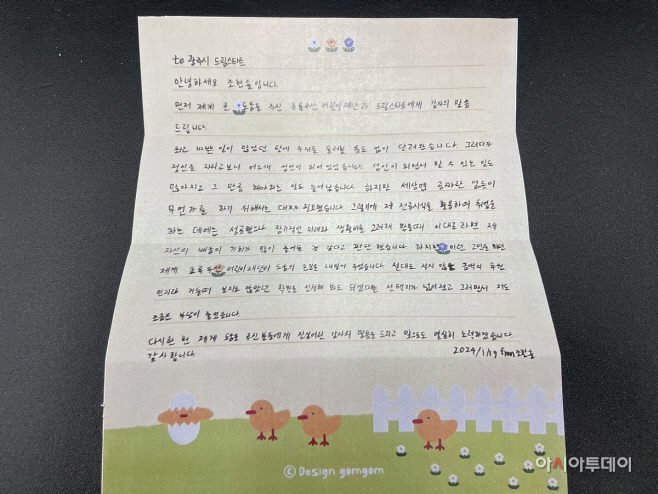 to 광주시 드림스타트
안녕하세요 조한솔입니다.
먼저 제게 큰 도움을 주신 초록우산 어린이재단과 드림스타트에게 감사의 말씀
드립니다.
최근 바쁜 일이 많았던 탓에 주위를 둘러볼 틈도 없이 달려왔습니다. 그러다가
정신을 차리고보니 어느새 성인이 되어 있었습니다. 성인이 되면서 할 수 있는 일도
많아지고 그 만큼 해야하는 일도 늘어났습니다. 하지만 세상엔 공짜란 없듯이
무언가를 하기 위해서는 대가가 필요했습니다. 그렇기에 제 전공지식을 활용하여 취업을
하는 데에는 성공했으나 장기적인 미래와 생활비를 고려해 봤을때 이대로라면 제
자신의 배움의 기회가 많이 줄어들 것 같다고 판단 했습니다. 하지만 이런 고민을 하던
제게 초록우산 어린이재단이 도움의 손길을 내밀어 주었습니다. 절대로 적지 않을 금액의 후원
인지라 거들떠 보지도 않았던 학원을 신청해 봐도 되겠다는 선택지가 넓어졌고 그러면서 저도
조금은 부담이 줄었습니다.
다시한 번 제게 도움 주신분들에게 진심어린 감사의 말씀을 드리고 앞으로도 열심히 노력하겠습니다.
감사합니다. 2024/1/19 from 조한솔
© Design gomgom
아시아투데이